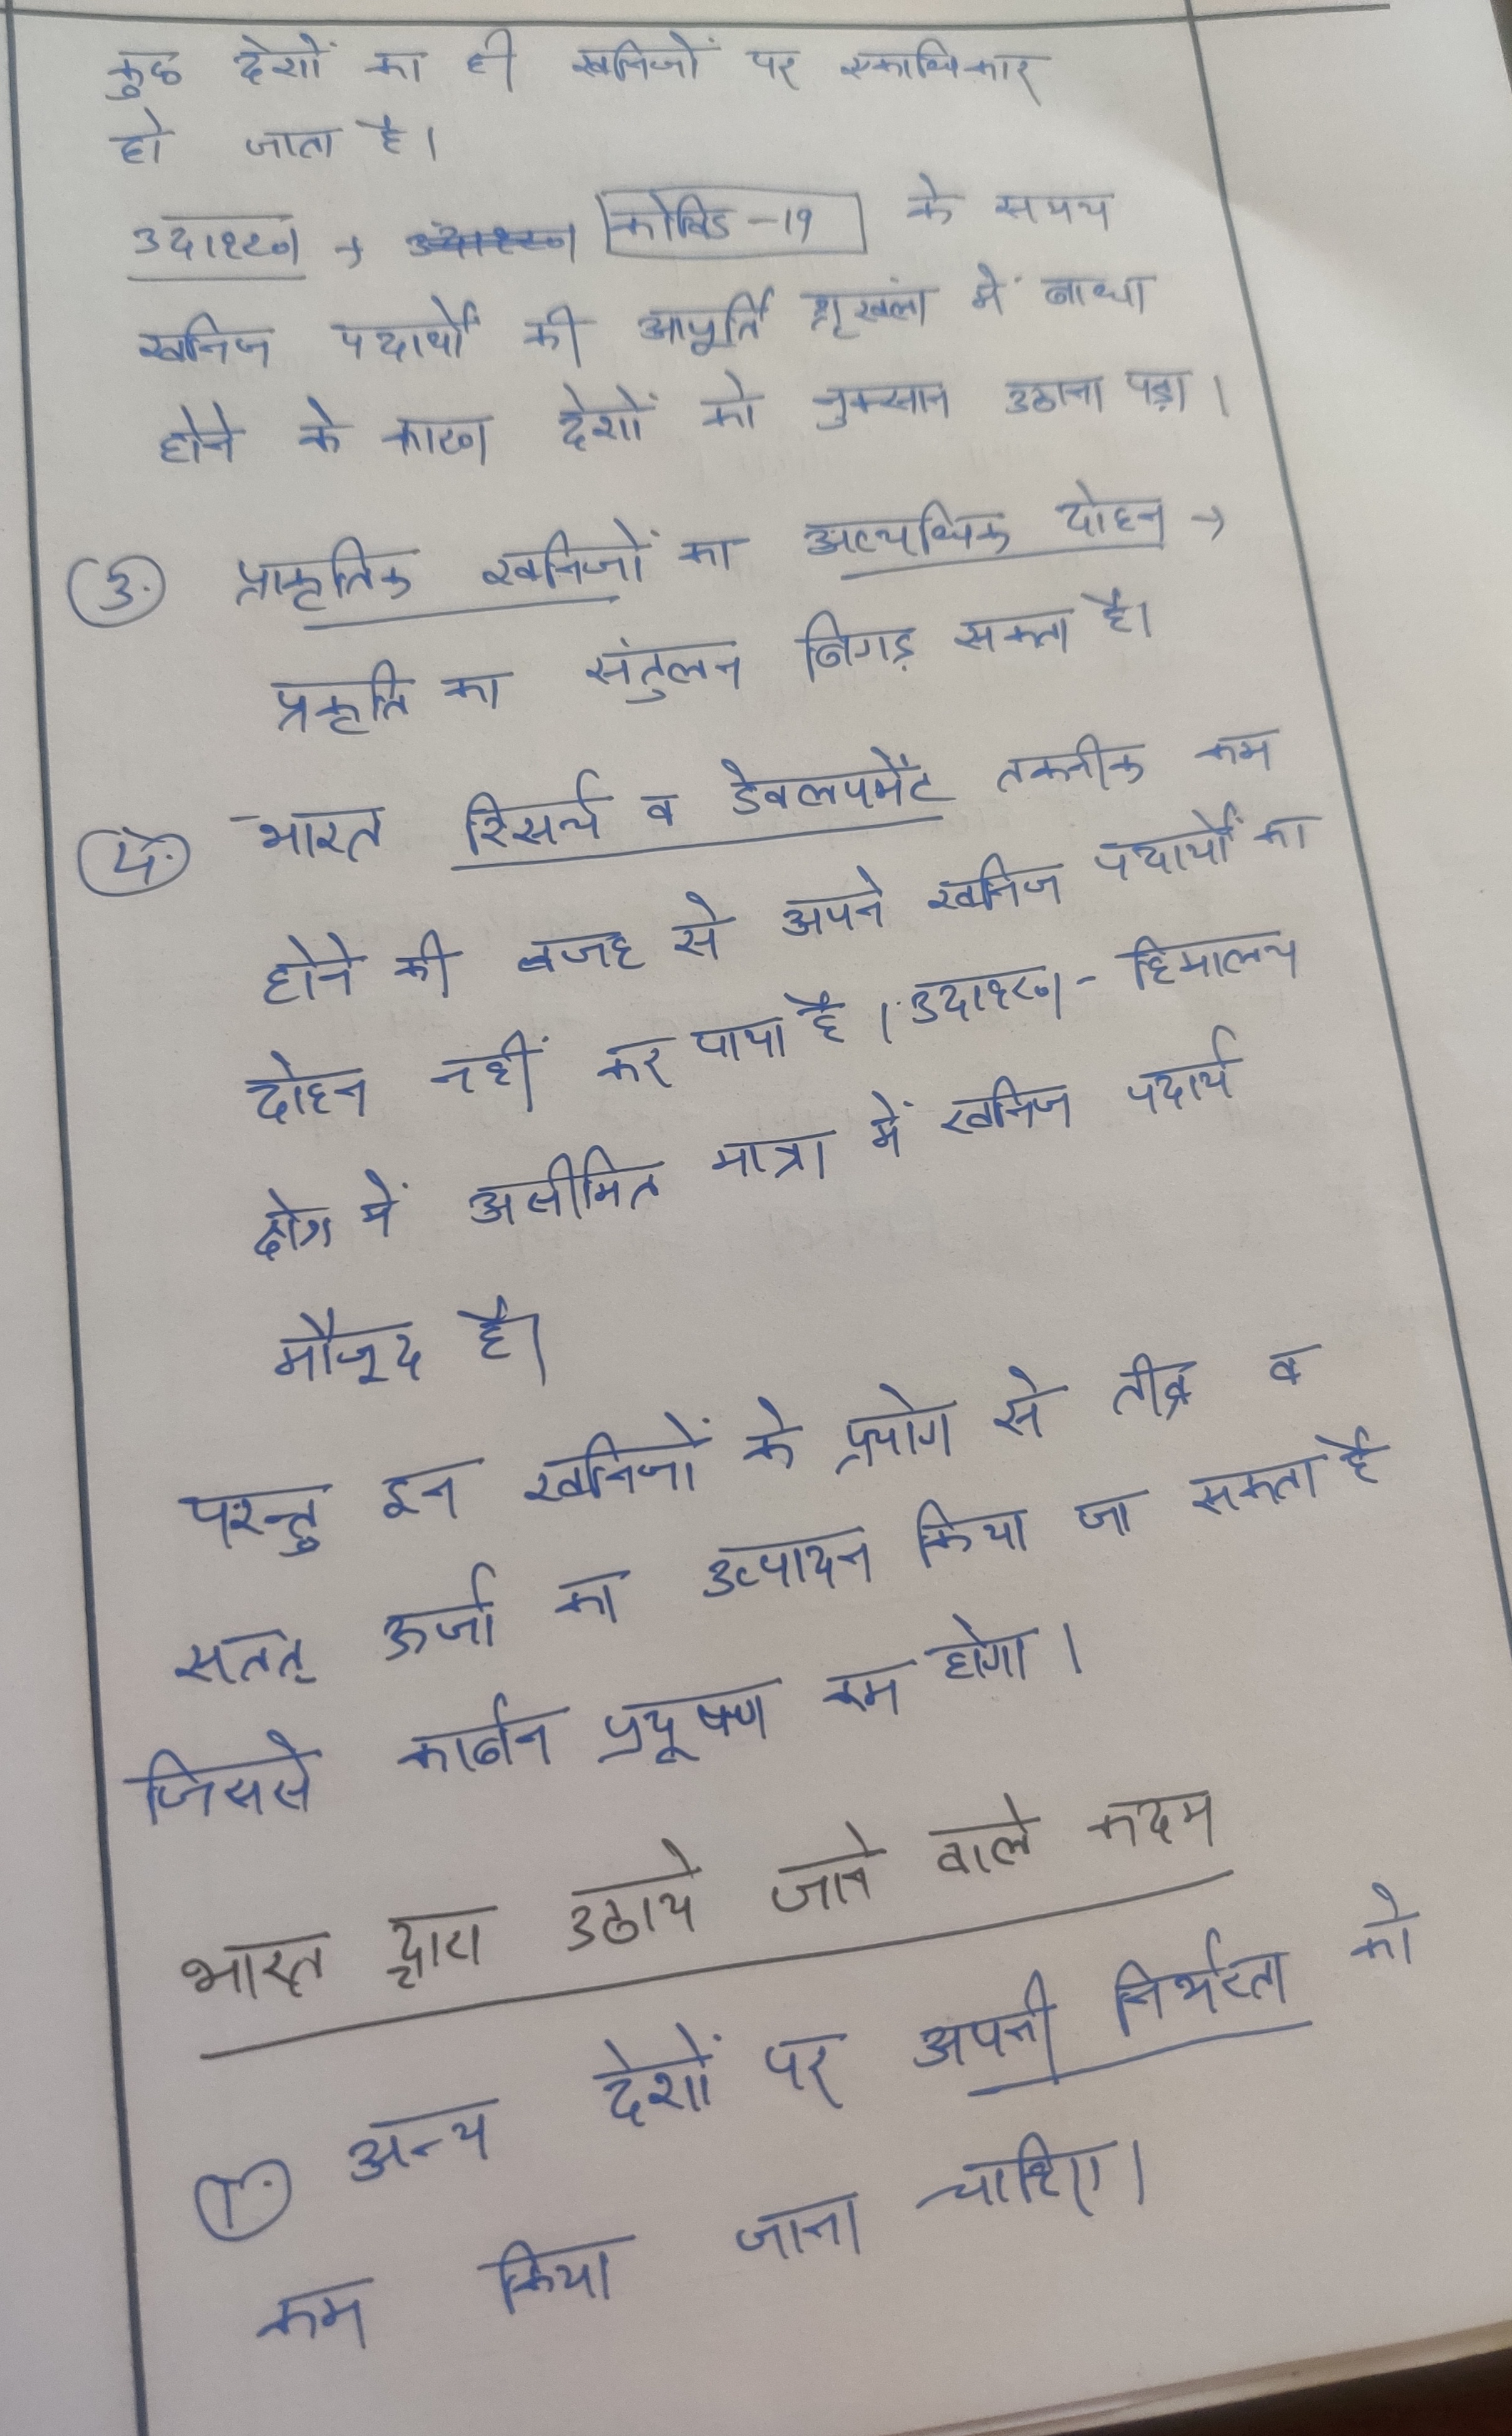 कुछ देशों का ही खनिजों पर एकाधिकार
हो जाता है।
उदाहरण → उदाहरण कोविड -19 के समय
खनिज पदार्थों की आपूर्ति शृखंला में बाधा
होने के कारण देशों को नुकसान उठाना पड़ा।
3. प्राकृतिक खनिजों का अत्यधिक दोहन →
प्रकृति का संतुलन बिगड़ सकता है।
4. भारत रिसर्च व डेवलपमेंट तकनीक कम
होने की वजह से अपने खनिज पदार्थों का
दोहन नहीं कर पाया है। उदाहरण - हिमालय
क्षेत्र में असीमित मात्रा में खनिज पदार्थ
मौजूद है।
परन्तु इन खनिजों के प्रयोग से तीव्र व
सतत् ऊर्जा का उत्पादन किया जा सकता है
जिससे कार्बन प्रदूषण कम होगा।
भारत द्वारा उठाये जाने वाले कदम
1. अन्य देशों पर अपनी निर्भरता को
कम किया जाना चाहिए।